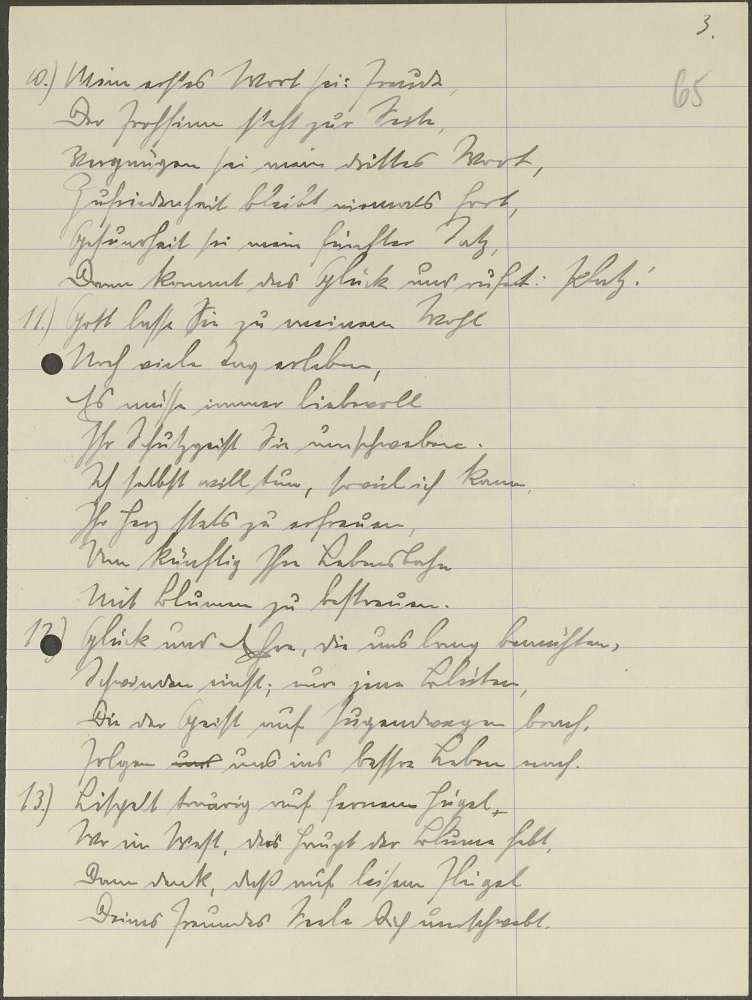 3.
65
10.) Mein erstes Wort sei: Freude,
Der Frohsinn steht zur Seite,
Vergnügen sei mein drittes Wort,
Zufriedenheit bleibt niemals fort,
Gesundheit sei mein fünfter Satz,
Dann kommt das Glück und rufet: Platz!
11.) Gott lasse Sie zu meinem Wohl
Noch viele Tag erleben,
Es müsse immer liebevoll
Ihr Schutzgeist Sie umschweben.
Ich selbst will tun, soviel ich kann,
Ihr Herz stets zu erfreuen,
Um künftig Ihre Lebensbahn
Mit Blumen zu bestreuen.
12.) Glück und Ehre, die uns lang bemühten,
Schwinden einst; nur jene Blüten,
Die der Geist auf Jugendwegen brach,
Folgen uns ins bessre Leben nach.
13.) Lispelt traurig auf fernem Hügel,
Wo im West, das Haupt der Blume hebt,
Dann denk, daß auf leisem Flügel
Deines Freundes Seele Dich umschwebt.